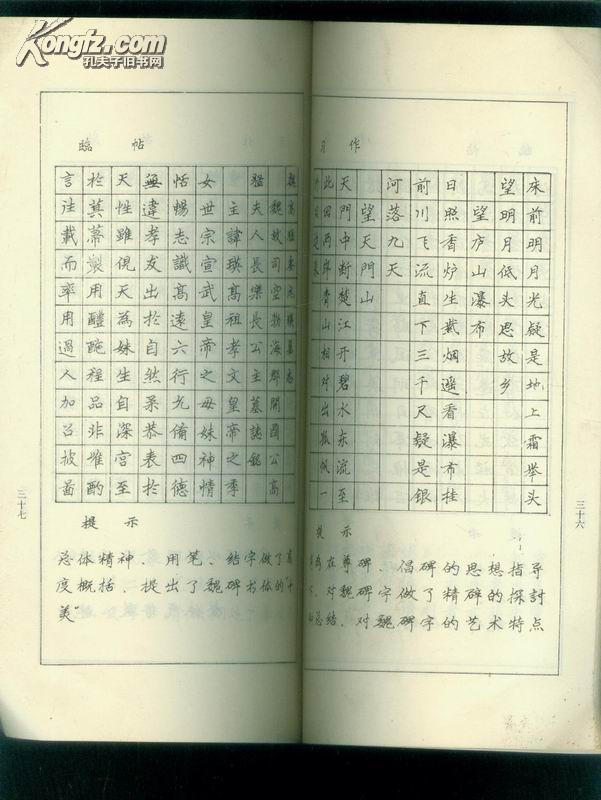 Kongfz.com
孔夫子旧书网
习作
床前明月光疑是地上霜举头
望明月低头思故乡
望庐山瀑布
日照香炉生紫烟遥看瀑布挂
前川飞流直下三千尺疑是银
河落九天
望天門山
天門中断楚江开碧水东流至
此回两岸青山相对出孤帆一
提示
在尊碑、倡碑的思想指导
对魏碑字做了精碎的探討
总结，对魏碑字的艺术特点
三十六
臨帖
魏故司空渤海郡開國公高
猛夫人長樂長公主墓誌銘
主諱瑛高祖孝文皇帝之季
女世宗宣武皇帝之母妹神情
恬暢志識高遠六行允備四德
無違孝友出於自然柔恭表於
天性雖俔天為妹生自深宮至
於蘩製用醴酏程品非堆酌
言注載而率用過人加召披啚
提示
总体精神、用笔、结字做了高
度概括，提出了魏碑书体的"十
美"
三十七